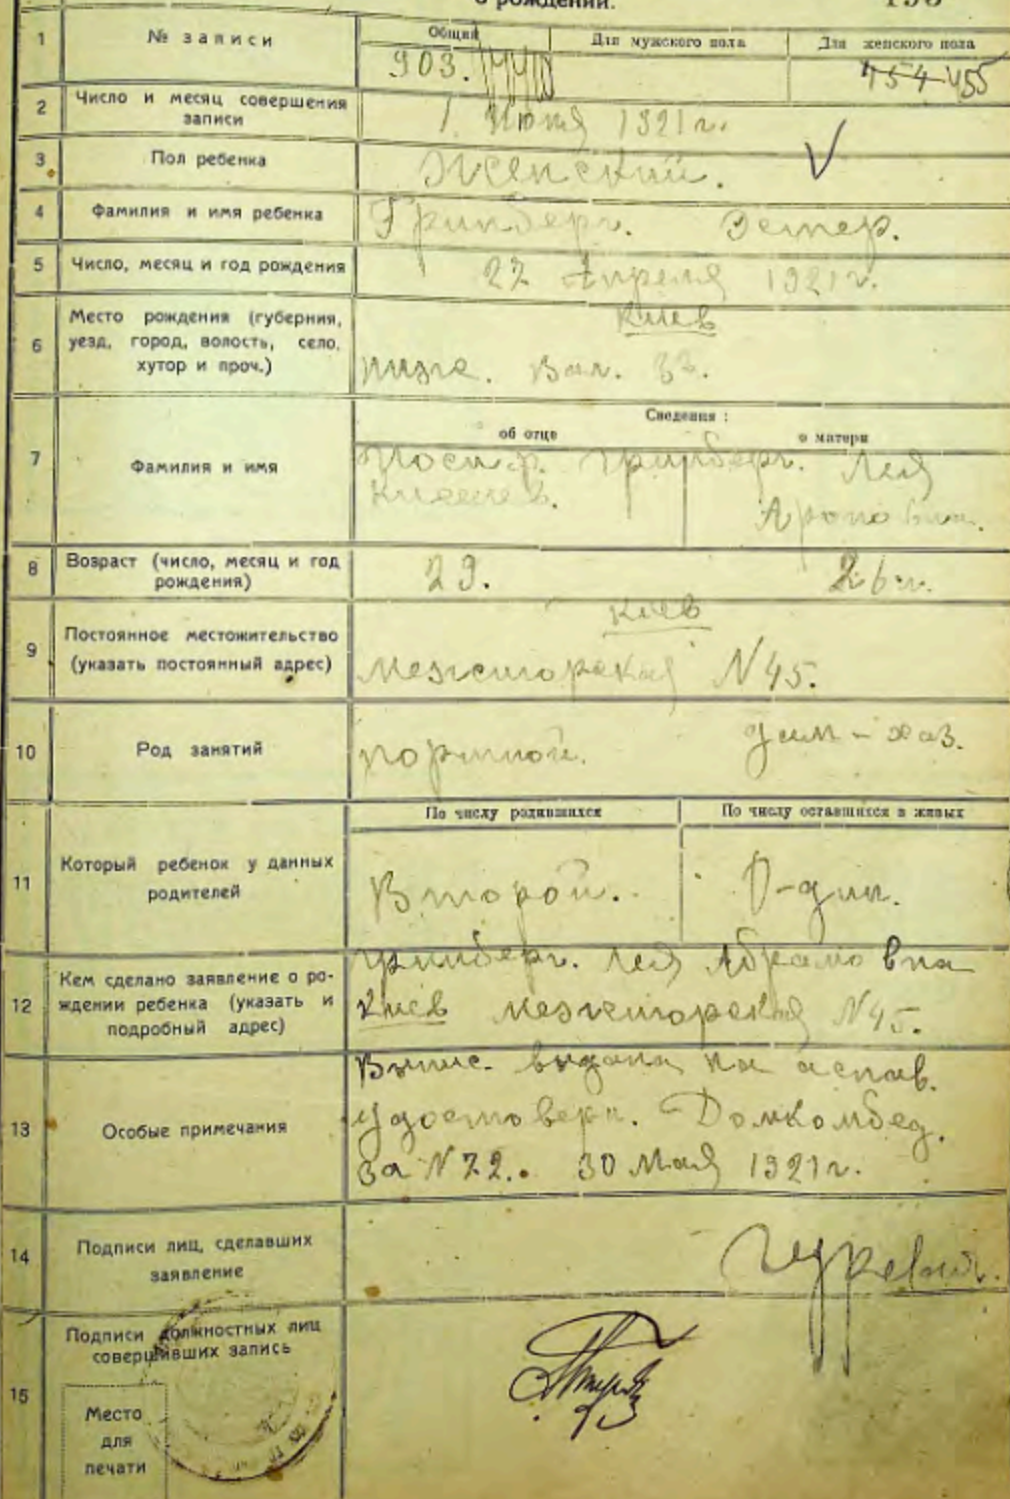 о рождении.
1 № записи Общий Для мужского пола Для женского пола
903. 454 455
2 Число и месяц совершения записи 1 Июня 1921 г.
3 Пол ребенка Женский.
4 Фамилия и имя ребенка Гринберг. Эстер.
5 Число, месяц и год рождения 22 Апреля 1921 г.
6 Место рождения (губерния, уезд, город, волость, село, хутор и проч.) Киев
Нижне. Вал. 33.
Сведения:
об отце о матери
7 Фамилия и имя Гринберг. Лея
Ароновна.
8 Возраст (число, месяц и год рождения) 29. 26 г.
9 Постоянное местожительство (указать постоянный адрес) Киев
Межигорская N 45.
10 Род занятий портной. дом-хоз.
По числу родившихся По числу оставшихся в живых
11 Который ребенок у данных родителей Второй. О-дин.
12 Кем сделано заявление о рождении ребенка (указать и подробный адрес) Гринберг. Лея Абрамовна
Киев Межигорская N 45.
13 Особые примечания Выпис. выдана на основ.
удостоверен. Домкомбед.
за N 22. 30 Мая 1921 г.
14 Подписи лиц, сделавших заявление Гуревич.
15 Подписи должностных лиц совершивших запись
Место
для
печати